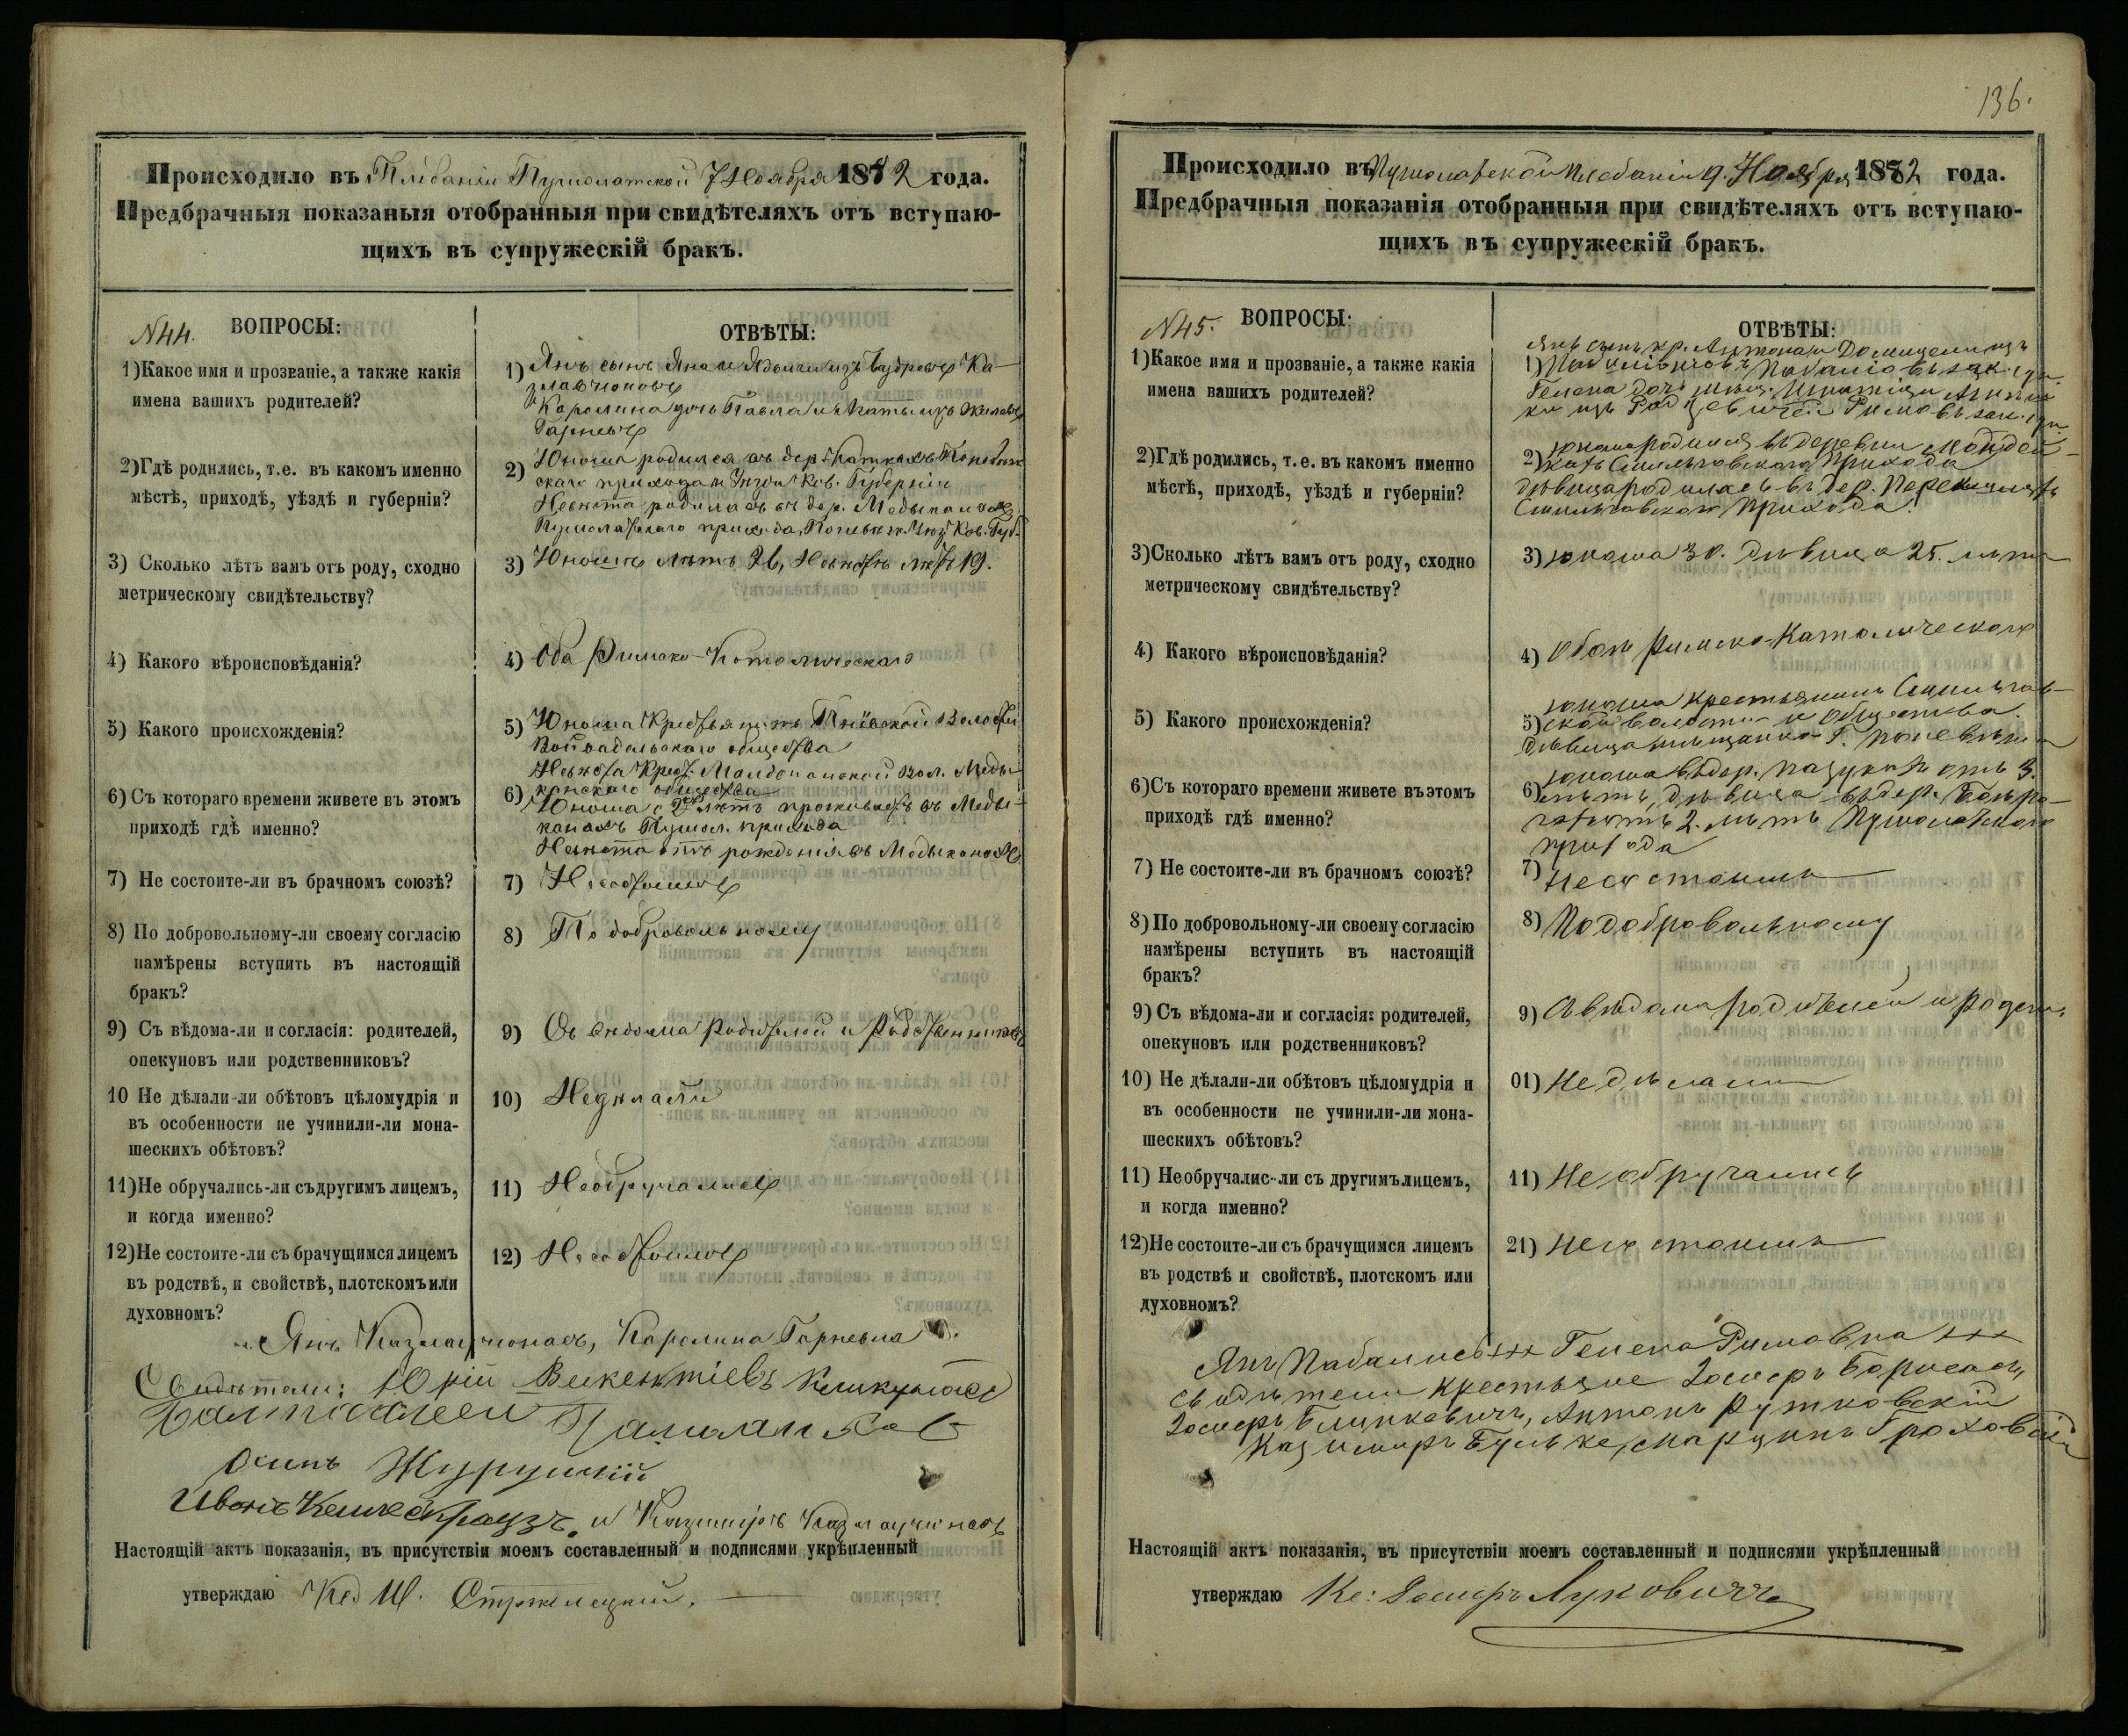 Происходило въ Плебаніи Пушолатской 7 Ноября 1882 года.
Предбрачныя показаныя отобранныя при свидѣтеляхъ отъ вступаю-
щихъ въ супружескій бракъ.
N44. ВОПРОСЫ:
ОТВѢТЫ:
1) Какое имя и прозваніе, а также какія
имена вашихъ родителей?
1) Янъ сынъ Яна и
Каролина дочь Павла и
2) Гдѣ родились, т.е. въ какомъ именно
мѣстѣ, приходѣ, уѣздѣ и губерніи?
2) Юноша родился въ дер.
скаго прихода и Уѣзда Ков. Губерніи
Невѣста родилась въ дер. Медыканахъ
Пушолатскаго прихода, Поневѣж. Уѣз. Ков. Губ.
3) Сколько лѣтъ вамъ отъ роду, сходно
метрическому свидѣтельству?
3) Юношѣ лѣтъ 26, Невѣстѣ лѣтъ 19.
4) Какого вѣроисповѣданія?
4) Оба Римско-Католическаго
5) Какого происхожденія?
5) Юноша Крестьянинъ Волости
общества
Невѣста Крест. Вол. Меды-
канскаго общества
6) Съ котораго времени живете въ этомъ
приходѣ гдѣ именно?
6) Юноша с лѣтъ проживаетъ въ Меды-
канахъ Пушол. прихода
Невѣста отъ рожденія въ Медыканахъ
7) Не состоите-ли въ брачномъ союзѣ?
7) Несостоимъ
8) По добровольному-ли своему согласію
намѣрены вступить въ настоящій
бракъ?
8) По добровольному
9) Съ вѣдома-ли и согласія: родителей,
опекуновъ или родственниковъ?
9) Съ вѣдома родителей и родственниковъ
10 Не дѣлали-ли обѣтовъ цѣломудрія и
въ особенности не учинили-ли мона-
шескихъ обѣтовъ?
10) Недѣлали
11) Не обручались-ли съ другимъ лицемъ,
и когда именно?
11) Необручались
12) Не состоите-ли съ брачущимся лицемъ
въ родствѣ, и свойствѣ, плотскомъ или
духовномъ?
12) Несостоимъ
Янъ Казлаучонасъ, Каролина Гарневна
Свидѣтели: Юрій Викентіевъ
Осипъ
Иванъ и Казиміръ Казлаучонасъ
Настоящій актъ показанія, въ присутствіи моемъ составленный и подписями укрѣпленный
утверждаю Ксд. Стржелецкій.
136.
Происходило въ Пушолатской Плебаніи 9. Ноября 1882 года.
Предбрачныя показанія отобранныя при свидѣтеляхъ отъ вступаю-
щихъ въ супружескій бракъ.
N45. ВОПРОСЫ:
ОТВѢТЫ:
1) Какое имя и прозваніе, а также какія
имена вашихъ родителей?
Янъ сынъ кр. Антона и Домицели изъ
1)
Гелена дочь мѣщ. Игнатія и Анни-
2) Гдѣ родились, т. е. въ какомъ именно
мѣстѣ, приходѣ, уѣздѣ и губерніи?
2) юноша родился въ деревни
Смильговскаго Прихода
дѣвица родилась въ дер.
Смильговскаго Прихода.
3) Сколько лѣтъ вамъ отъ роду, сходно
метрическому свидѣтельству?
3) юноша 30. дѣвица 25. лѣтъ
4) Какого вѣроисповѣданія?
4) Обоя Римско-Католическаго
5) Какого происхожденія?
5) юноша крестьянинъ Смильгов-
ской волости и общества.
дѣвица мѣщанка Г. Поневѣжа
6) Съ котораго времени живете въ этомъ
приходѣ гдѣ именно?
6) юноша въ дер. отъ 3.
лѣтъ, дѣвица въ дер.
2. лѣтъ Пушолатскаго
прихода
7) Не состоите-ли въ брачномъ союзѣ?
7) Несостоимъ
8) По добровольному-ли своему согласію
намѣрены вступить въ настоящій
бракъ?
8) По добровольному
9) Съ вѣдома-ли и согласія: родителей,
опекуновъ или родственниковъ?
9) Съ вѣдома родителей и родст.
10) Не дѣлали-ли обѣтовъ цѣломудрія и
въ особенности не учинили-ли мона-
шескихъ обѣтовъ?
01) Не дѣлали
11) Необручалис-ли съ другимъ лицемъ,
и когда именно?
11) Не обручались
12) Не состоите-ли съ брачущимся лицемъ
въ родствѣ и свойствѣ, плотскомъ или
духовномъ?
21) Несостоимъ
Янъ Пабалисъ +++ Гелена Римовна +++
свидѣтели крестьяне Іосифъ Борисасъ,
Іосифъ Блинкевичъ, Антонъ Рутковскій
Казимиръ Бульке, Марцинъ Гроховскій
Настоящій актъ показанія, въ присутствіи моемъ составленный и подписями укрѣпленный
утверждаю Кс: Іосифъ Луковичъ